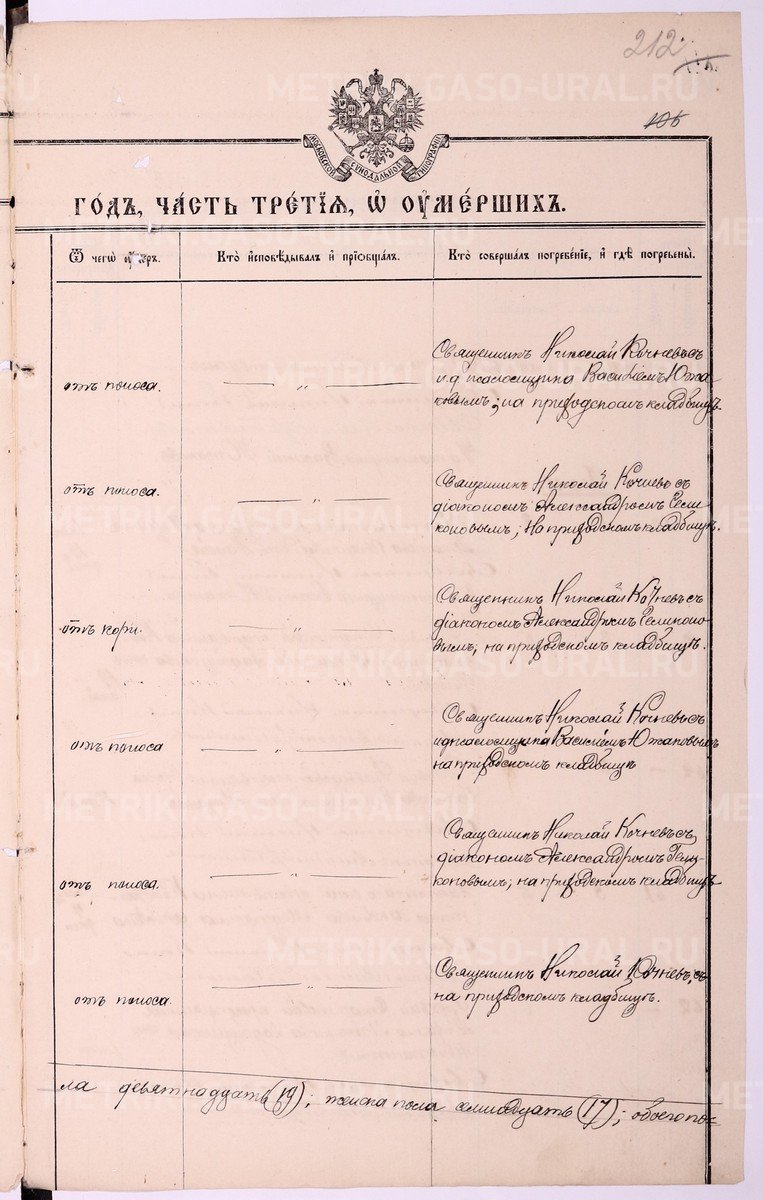 212
106
МОСКОВСКОЙ СѴНОДАЛЬНОЙ ТИПОГРАФІИ
ГОДЪ, ЧАСТЬ ТРЕТІЯ, Ѡ ОУМЕРШИХЪ.
Ѿ чегѡ оумеръ.
Кто исповѣдывалъ и пріѡбщалъ.
Кто совершалъ погребеніе, и гдѣ погребены.
отъ поноса.
— „ —
Священникъ Николай Кочневъ съ
и.д. псаломщика Василіемъ Южа-
ковымъ; на приходскомъ кладбищѣ.
отъ поноса.
— „ —
Священникъ Николай Кочневъ съ
діакономъ Александромъ Гели-
коновымъ; на приходскомъ кладбищѣ.
отъ кори.
— „ —
Священникъ Николай Кочневъ съ
діакономъ Александромъ Геликоно-
вымъ; на приходскомъ кладбищѣ.
отъ поноса
— „ —
Священникъ Николай Кочневъ съ
и.д. псаломщика Василіемъ Южаковымъ
на приходскомъ кладбищѣ
отъ поноса.
— „ —
Священникъ Николай Кочневъ съ
діакономъ Александромъ Гели-
коновымъ; на приходскомъ кладбищѣ
отъ поноса.
— „ —
Священникъ Николай Кочневъ, съ
на приходскомъ кладбищѣ.
ла девятнадцать (19); женска пола семнадцать (17); обоего по-
METRIKI.GASO-URAL.RU